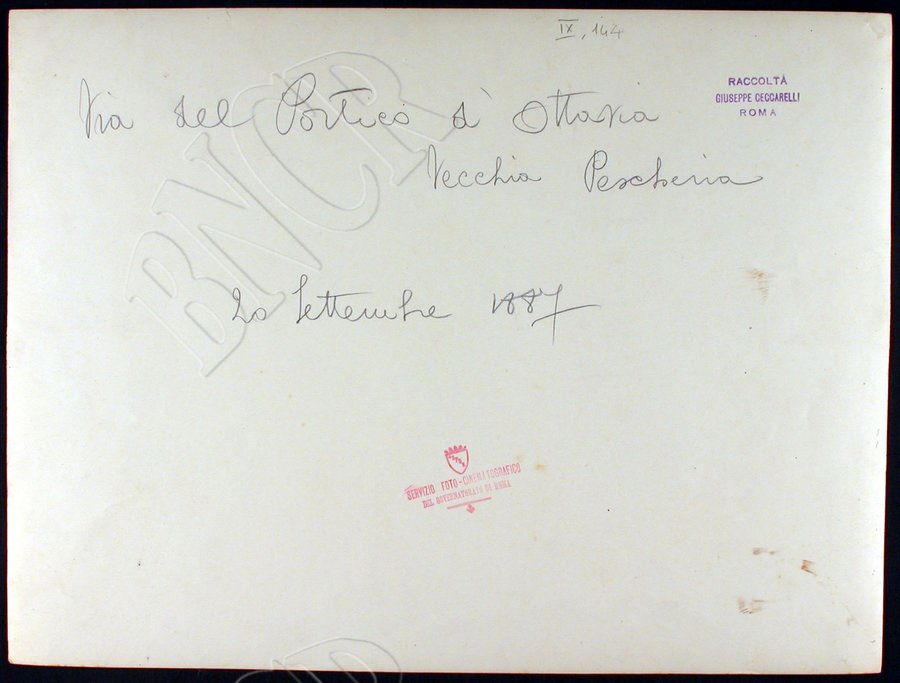 IX, 144
RACCOLTÀ
GIUSEPPE CECCARELLI
ROMA
Via del Portico d' Ottavia
Vecchia Pescheria
20 Settembre 1887
SERVIZIO FOTO-CINEMATOGRAFICO
DEL GOVERNATORATO DI ROMA
BNCR